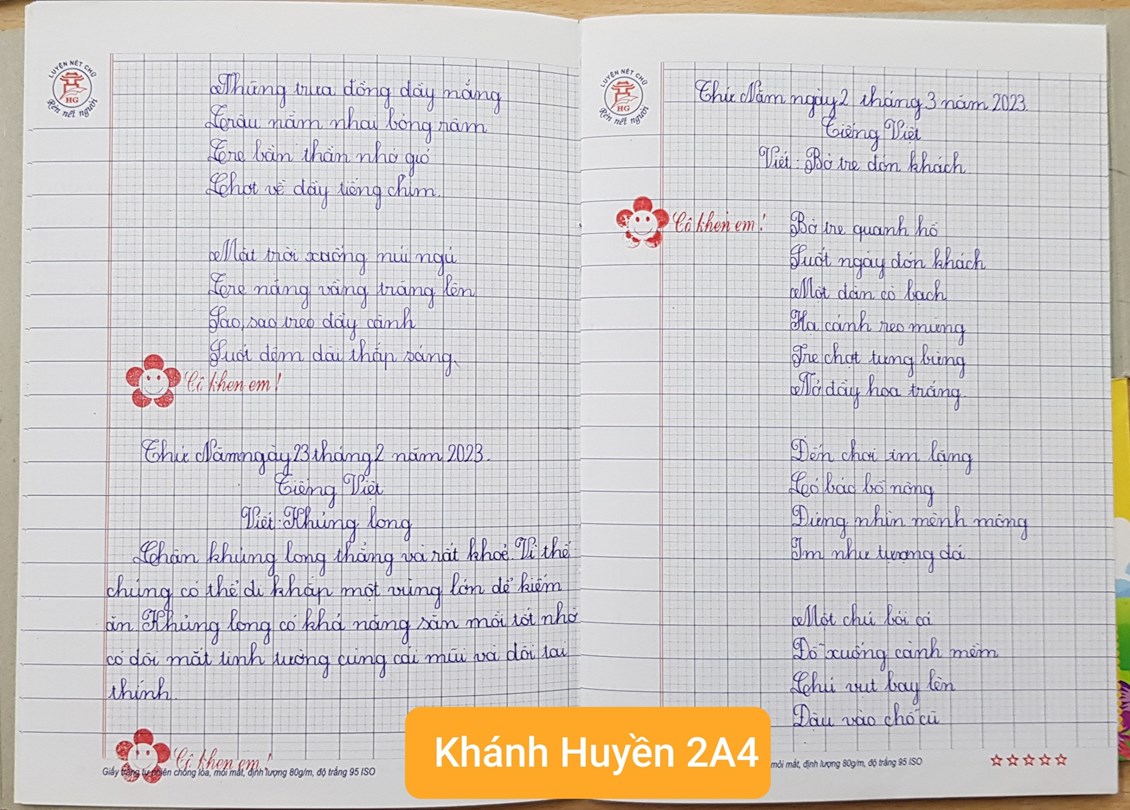 LUYỆN NÉT CHỮ
HG
Rèn nết người
Những trưa đồng đầy nắng
Trâu nằm nhai bóng râm
Tre bần thần nhớ gió
Chợt về đầy tiếng chim.
Mặt trời xuống núi ngủ
Tre nâng vầng trăng lên
Sao, sao treo đầy cành
Suốt đêm dài thắp sáng.
Cô khen em!
Thứ Năm ngày 23 tháng 2 năm 2023.
Tiếng Việt
Viết: Khủng long
Chân khủng long thẳng và rất khoẻ. Vì thế
chúng có thể đi khắp một vùng lớn để kiếm
ăn. Khủng long có khả năng săn mồi tốt nhờ
có đôi mắt tinh tường cùng cái mũi và đôi tai
thính.
Cô khen em!
Giấy trắng tự nhiên chống lóa, mỏi mắt, định lượng 80g/m, độ trắng 95 ISO
LUYỆN NÉT CHỮ
HG
Rèn nết người
Thứ Năm ngày 2 tháng 3 năm 2023.
Tiếng Việt
Viết: Bờ tre đón khách
Cô khen em!
Bờ tre quanh hồ
Suốt ngày đón khách
Một đàn cò bạch
Hạ cánh reo mừng
Tre chợt tưng bừng
Nở đầy hoa trắng.
Đến chơi im lặng
Có bác bồ nông
Đứng nhìn mênh mông
Im như tượng đá.
Một chú bói cá
Đỗ xuống cành mềm
Chú vụt bay lên
Đậu vào chỗ cũ.
mỏi mắt, định lượng 80g/m, độ trắng 95 ISO
Khánh Huyền 2A4